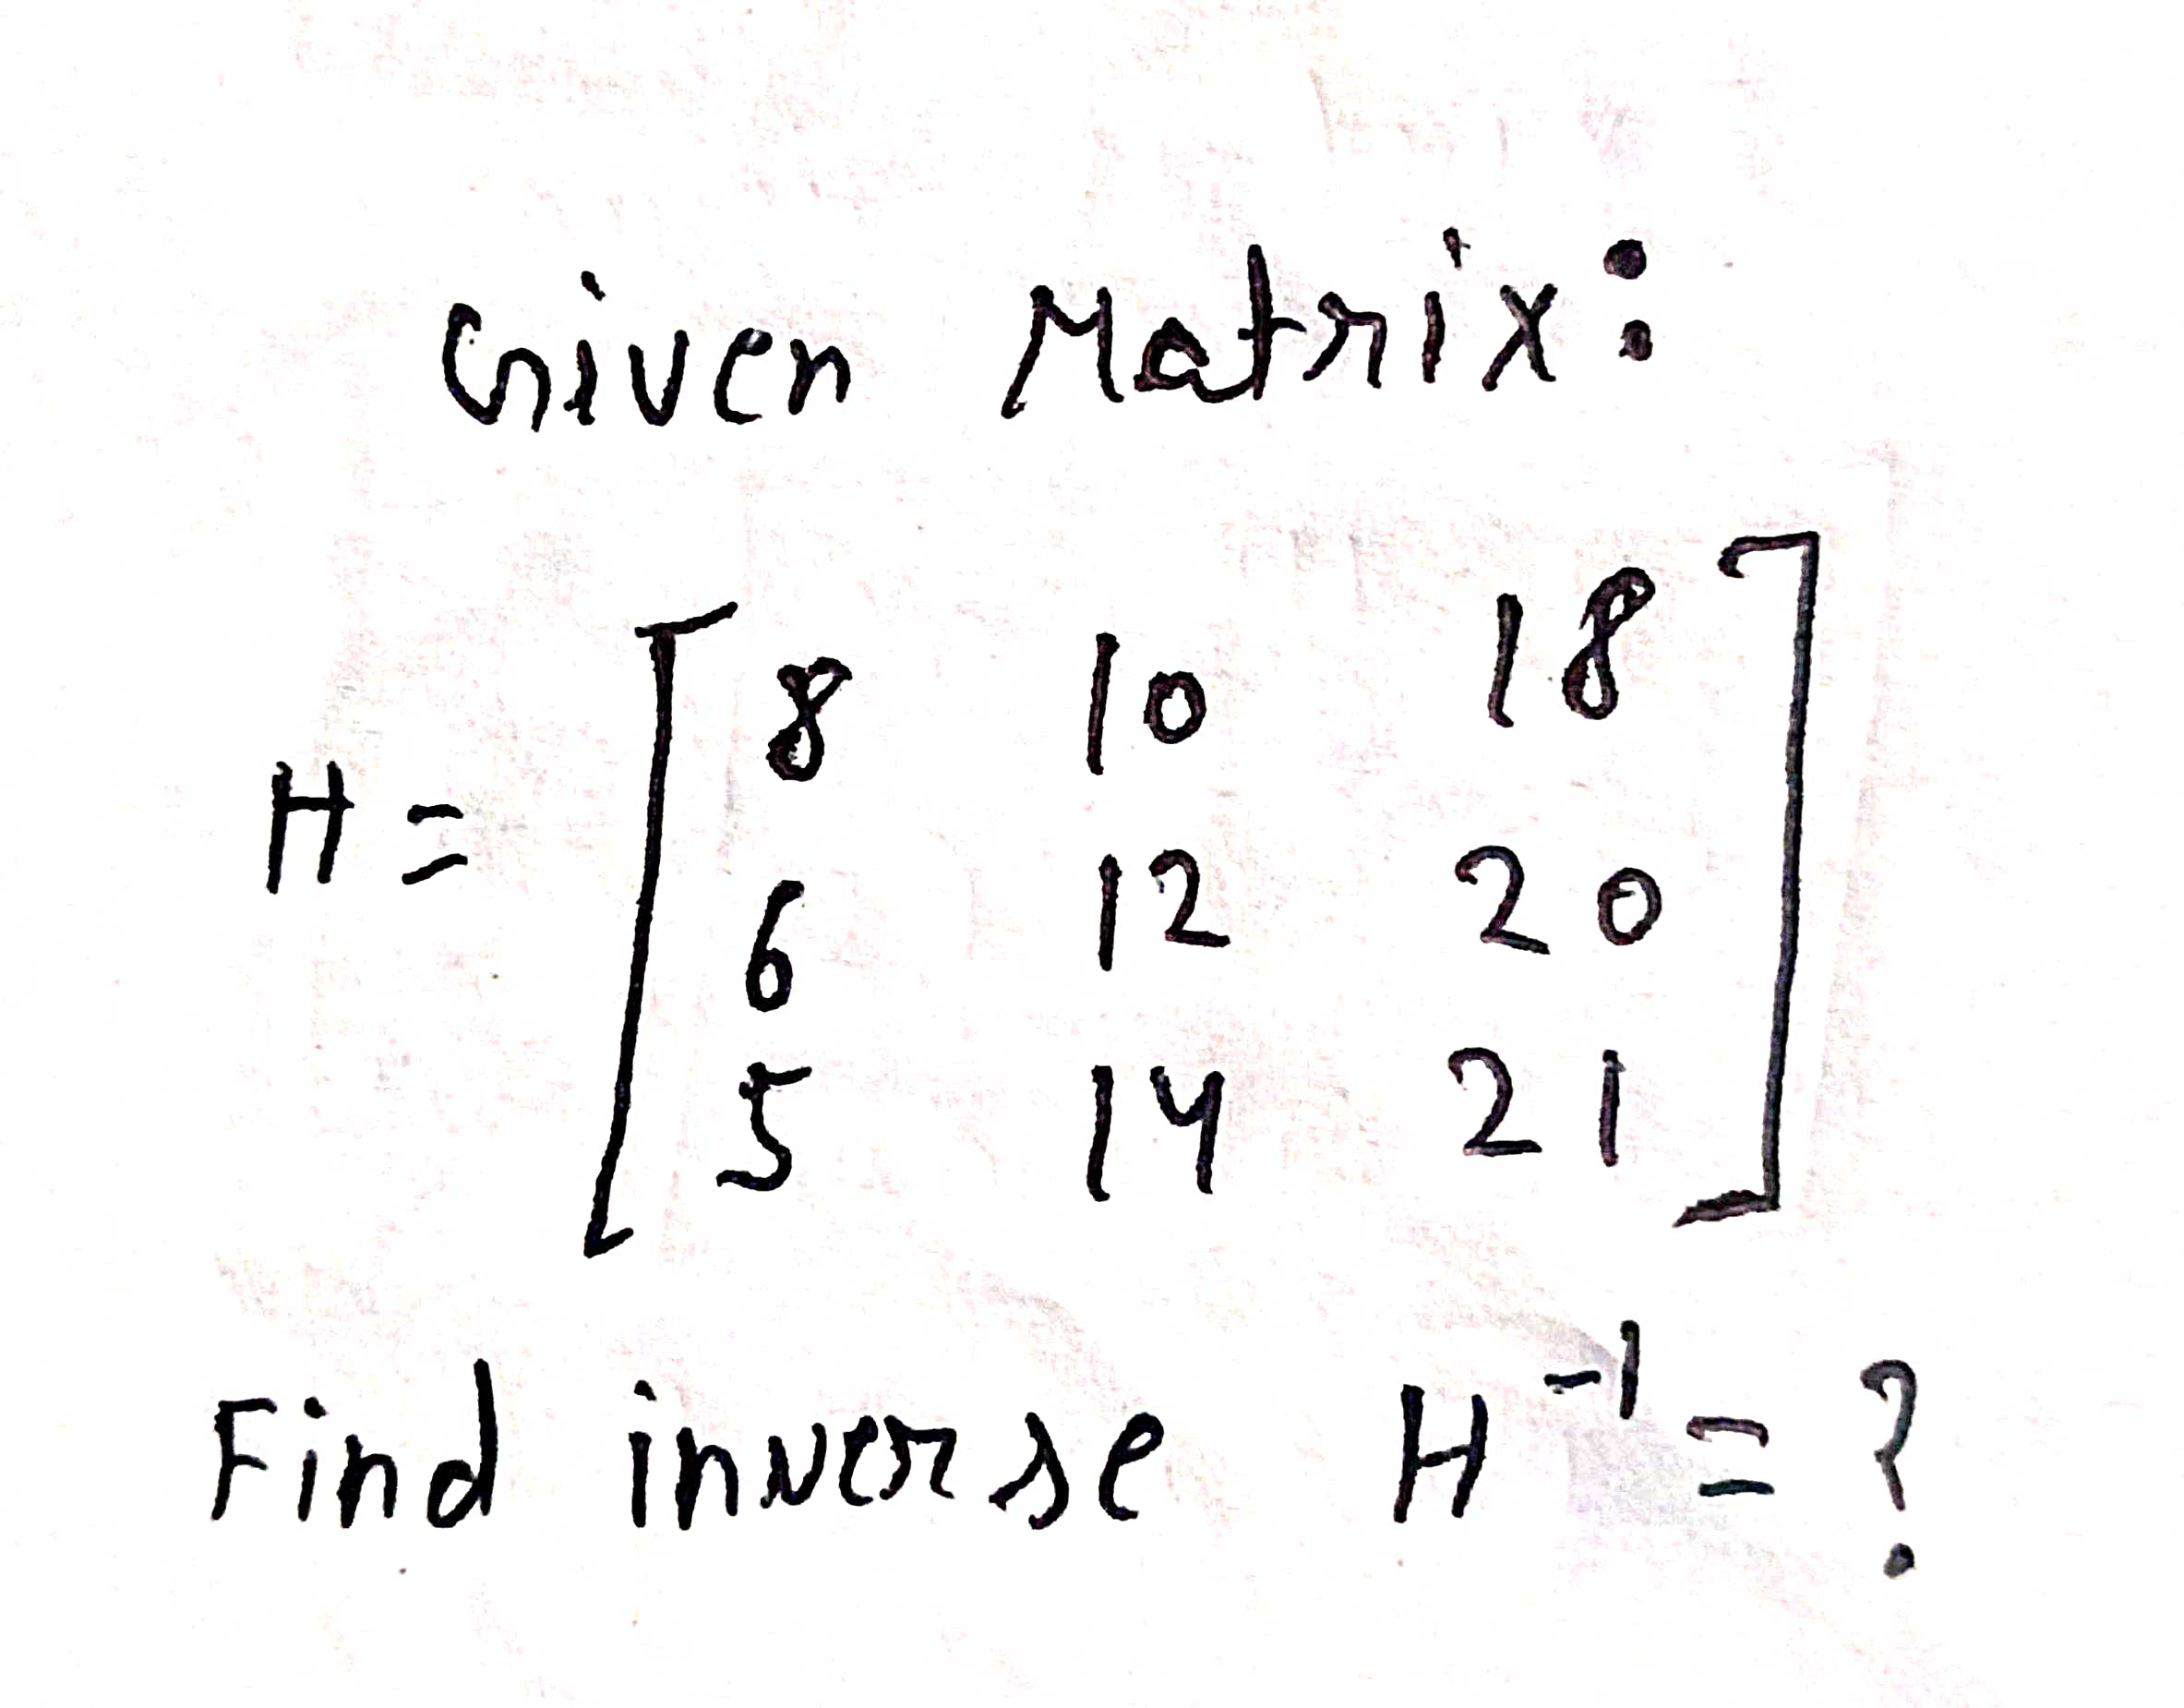 Given Matrix:
H = [ 8 10 18
6 12 20
5 14 21 ]
Find inverse H⁻¹ = ?